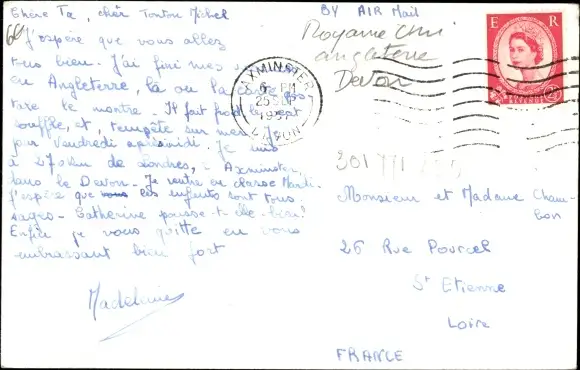 Chère Ta, cher Tonton Michel
J'espère que vous allez
tous bien. J'ai fini mes
en Angleterre, là ou la carte pos-
tale le montre. Il fait froid le vent
souffle, et, tempête sur mer. Je
pour Vendredi après-midi. Je suis
à 270 km de Londres, à Axminster,
dans le Devon. Je rentre en classe Mardi.
J'espère que vous les enfants sont tous
sages. Catherine pousse-t-elle bien?
Enfin je vous quitte en vous
embrassant bien fort
Madeleine
BY AIR Mail
Royaume Uni
angleterre
Devon
AXMINSTER
6 PM
25 SEP
DEVON
E R
301
Monsieur et Madame Cham-
bon
26 Rue Pourcel
St Etienne
Loire
FRANCE